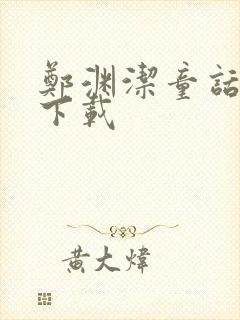 鄭渊潔童話
下載
黄大煒